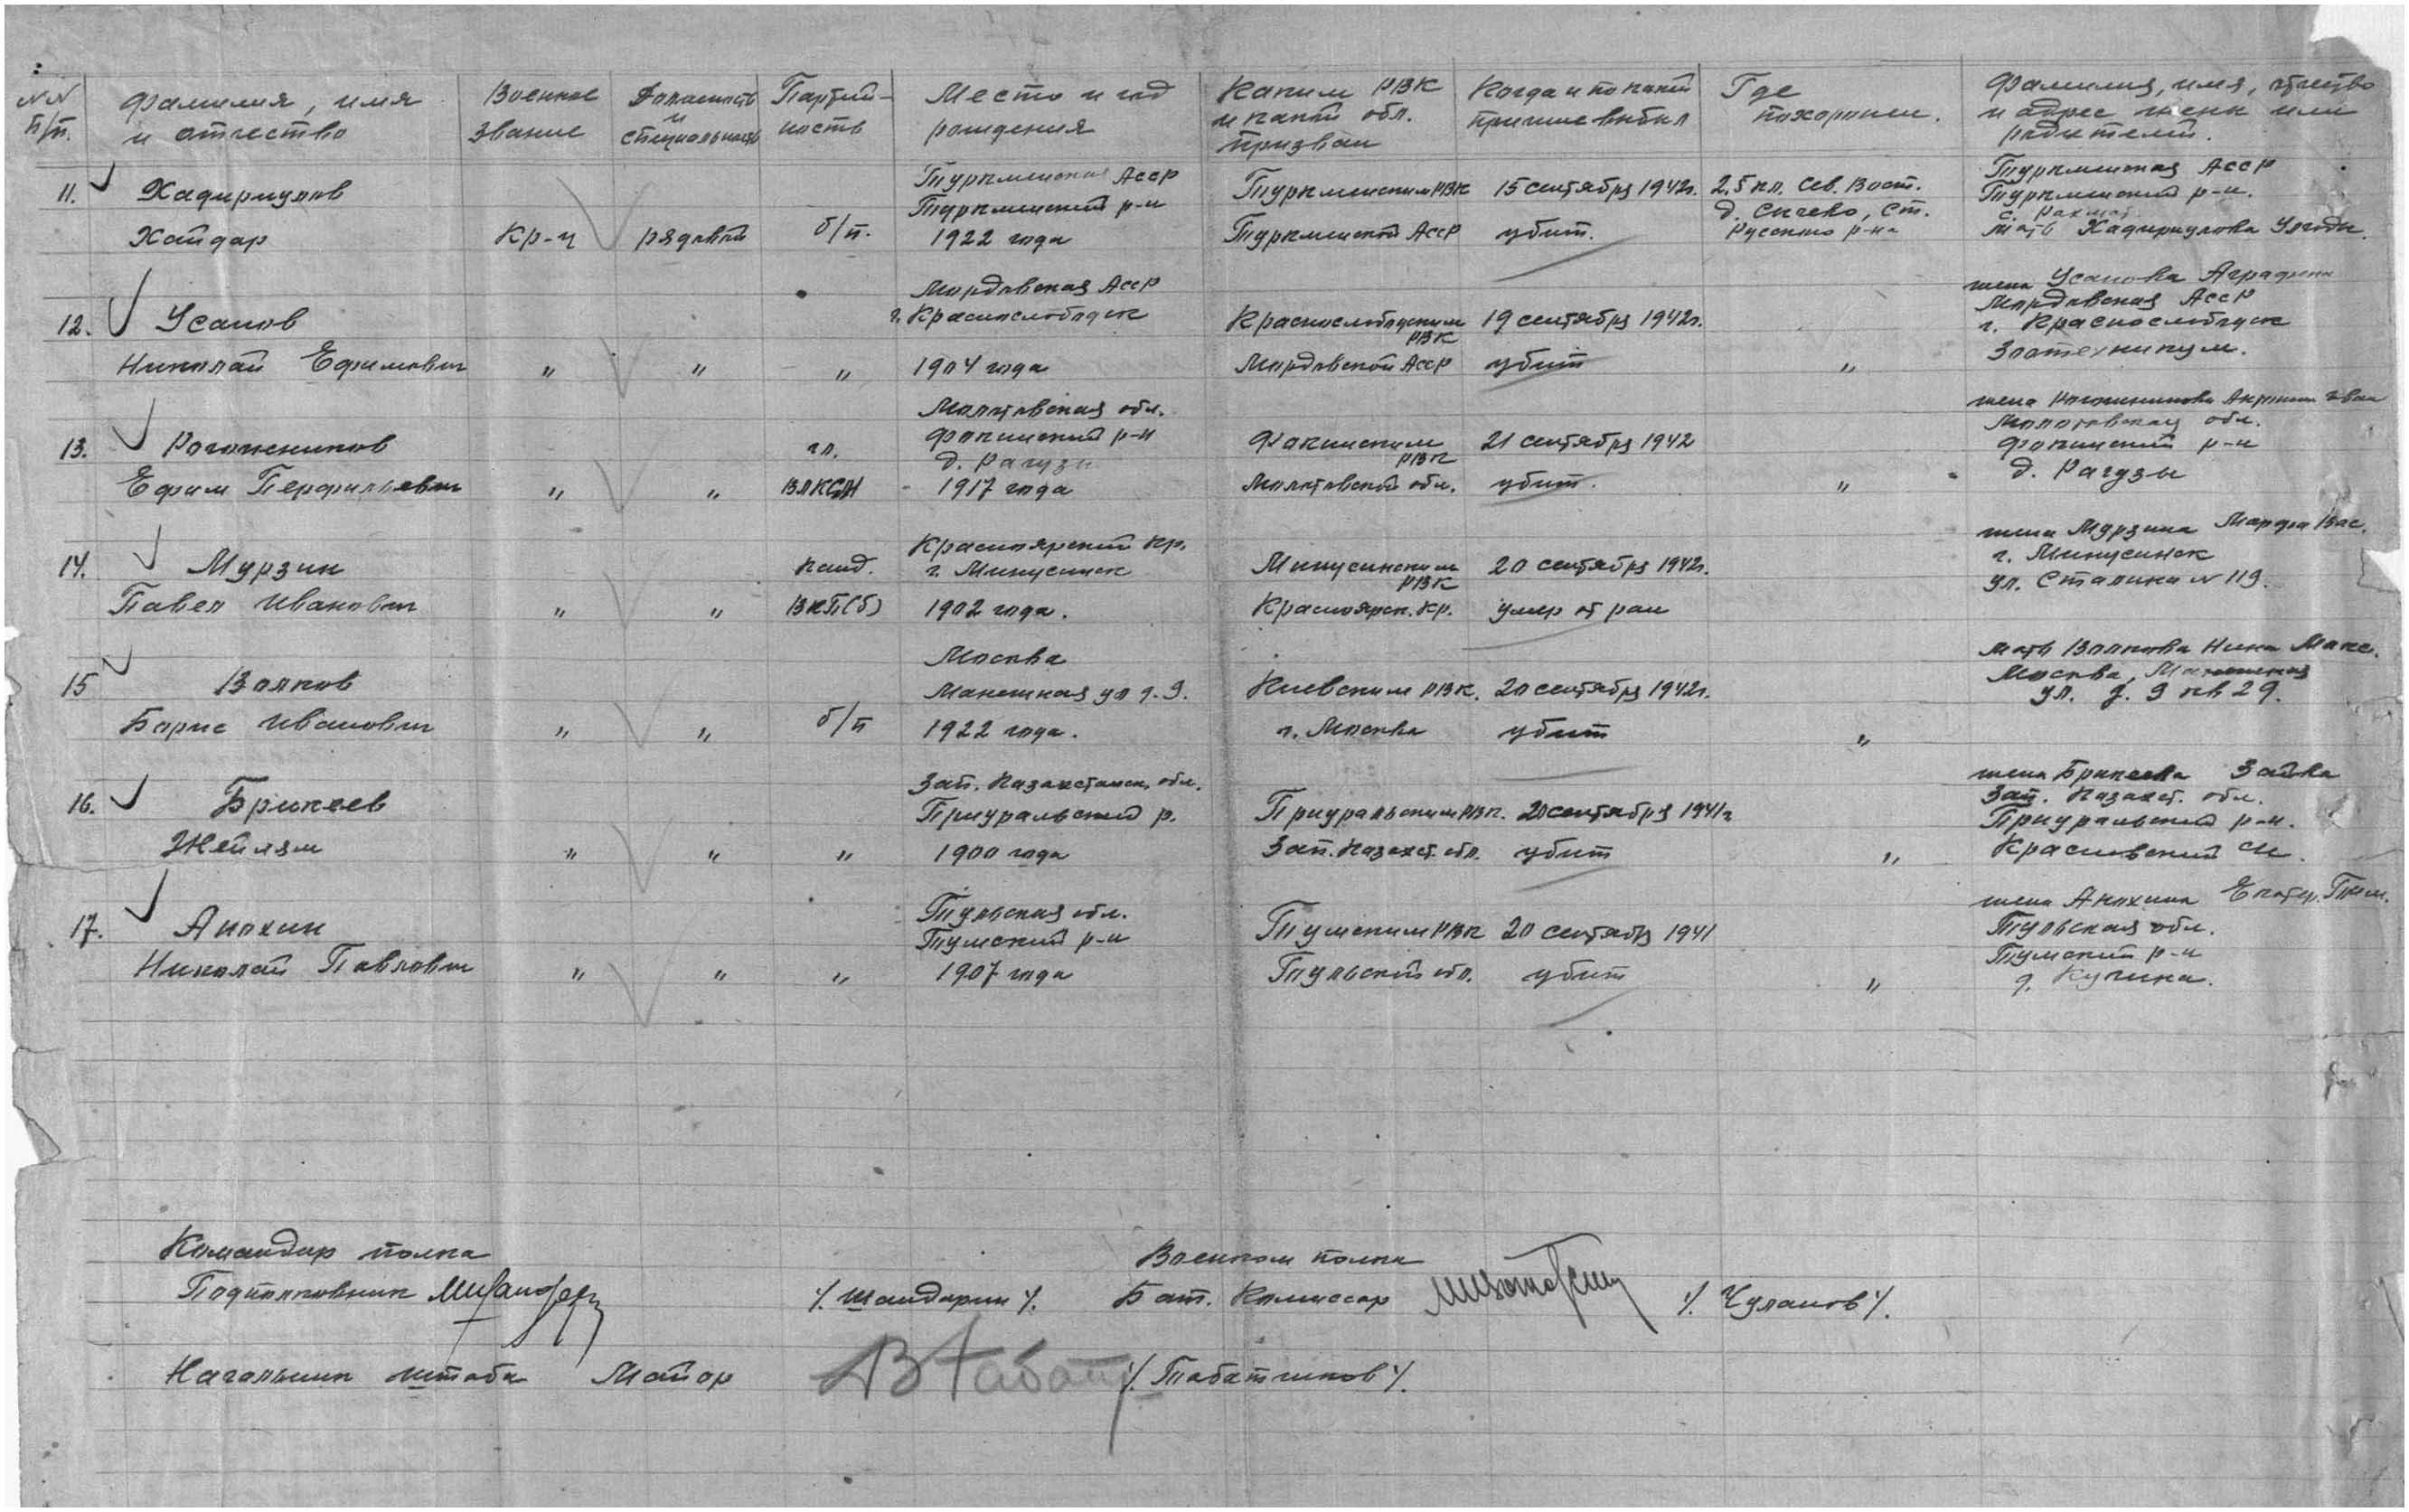 №№ п/п.
Фамилия, имя и отчество
Военное звание
Должность и специальность
Партийность
Место и год рождения
Каким РВК и какой обл. призван
Когда и по какой причине выбыл
Где похоронен.
Фамилия, имя, отчество и адрес жены или родителей.
11. Хадиркулов
Хайдар
Кр-ц
рядовой
б/п.
Туркменская АССР
Туркменский р-н
1922 года
Туркменским РВК
Туркменской АССР
15 сентября 1942г.
убит.
2,5 кл. Сев. Вост.
д. Сычево, Ст.
Русского р-на
Туркменская АССР
Туркменский р-н.
с.
мать Хадиркулова
12. Усанов
Николай Ефимович
"
"
"
Мордовская АССР
г. Краснослободск
1904 года
Краснослободским РВК
Мордовской АССР
19 сентября 1942г.
убит
"
жена Усанова Аграфена
Мордовская АССР
г. Краснослободск
Зоотехникум.
13. Рогожников
Ефим Перфильевич
"
"
чл.
ВЛКСМ
Молотовская обл.
Фокинский р-н
д. Рагузы
1917 года
Фокинским РВК
Молотовской обл.
21 сентября 1942
убит.
"
жена Рогожникова
Молотовская обл.
Фокинский р-н
д. Рагузы
14. Мурзин
Павел Иванович
"
"
канд.
ВКП(б)
Красноярский кр.
г. Минусинск
1902 года.
Минусинским РВК
Красноярск. кр.
20 сентября 1942г.
умер от ран
жена Мурзина Марфа Вас.
г. Минусинск
ул. Сталина № 119.
15 Волков
Борис Иванович
"
"
б/п
Москва
Манежная ул д. 9.
1922 года.
Киевским РВК.
г. Москва
20 сентября 1942г.
убит
"
мать Волкова Нина Макс.
Москва, Манежная
ул. д. 9 кв 29.
16. Брикеев
Жейлям
"
"
"
Зап. Казахстанск. обл.
Приуральский р.
1900 года
Приуральским РВК.
Зап. Казахст. обл.
20 сентября 1941г
убит
"
жена Брикеева Зайва
Зап. Казахст. обл.
Приуральский р-н.
Красновский с/с.
17. Анохин
Николай Павлович
"
"
"
Тульская обл.
Тумский р-н
1907 года
Тумским РВК
Тульской обл.
20 сентябр 1941
убит
"
жена Анохина Екатер. Тим.
Тульская обл.
Тумский р-н
д. Кучина.
Командир полка
Подполковник
/. Шандарин /.
Военком полка
Бат. Комиссар
/. Чуланов /.
Начальник штаба Майор
/. Табатчиков /.